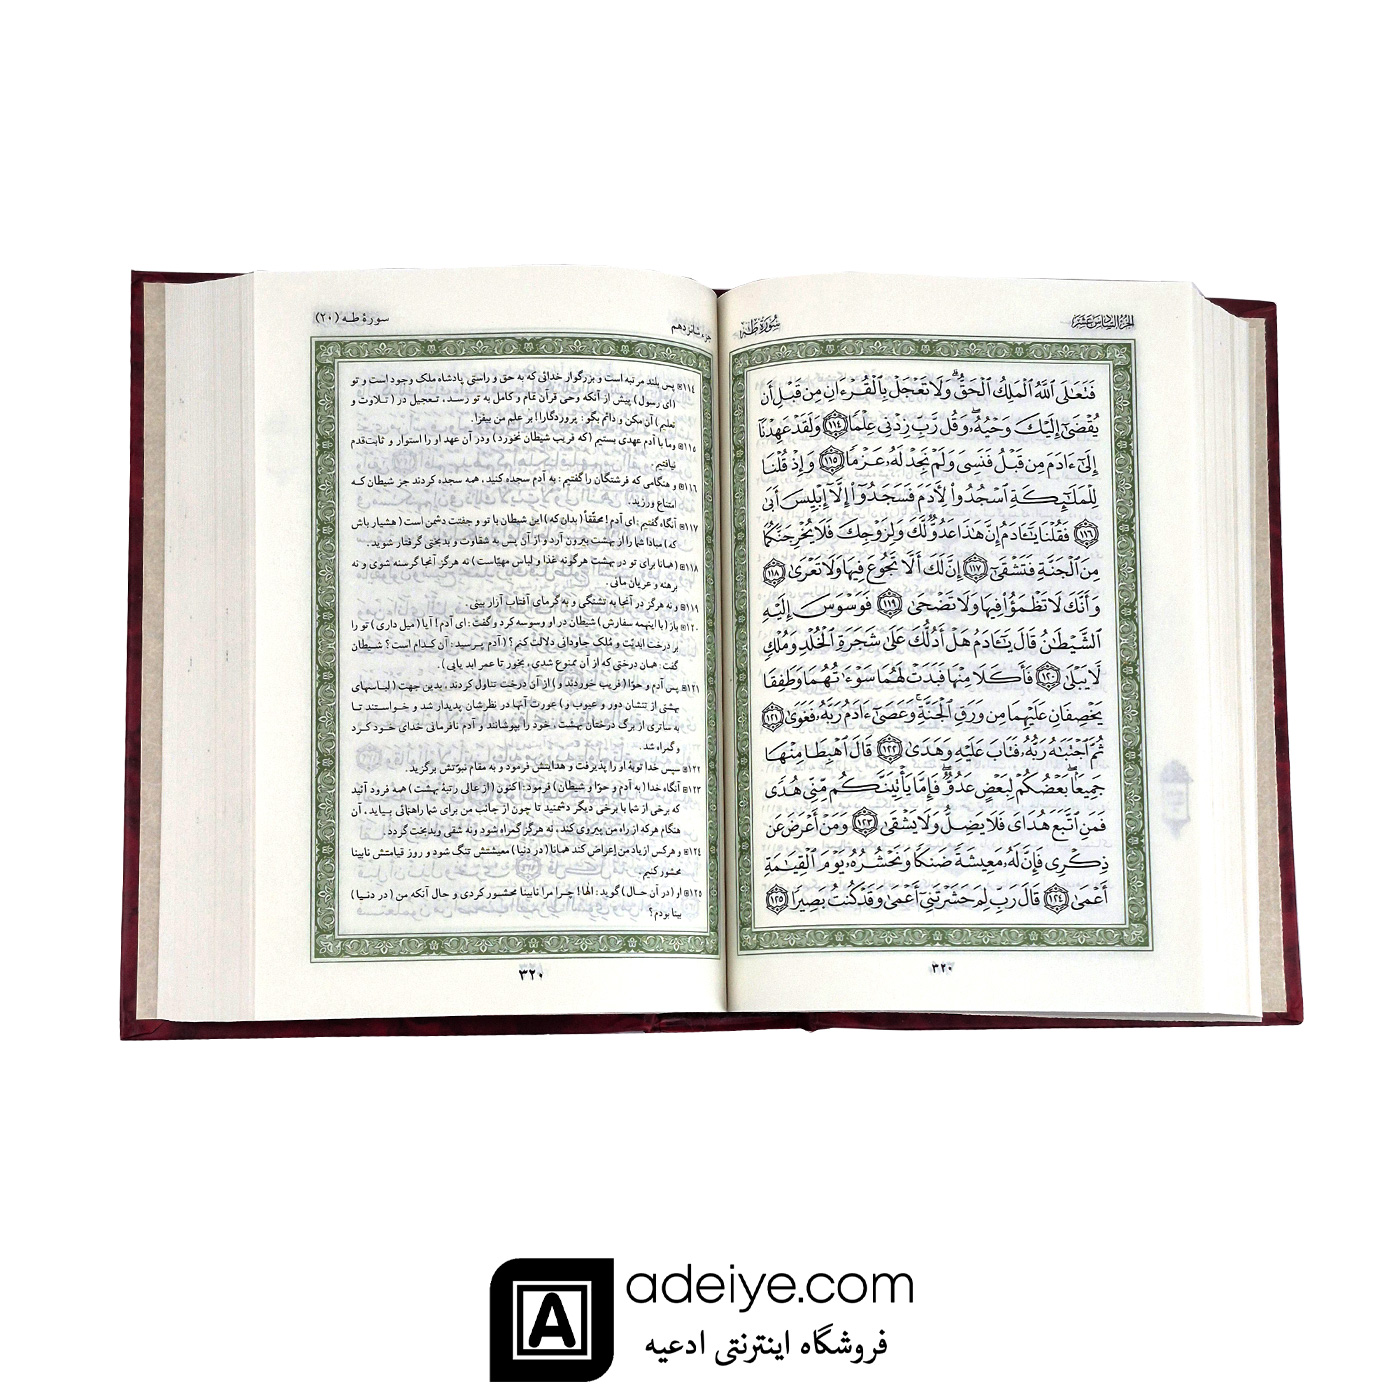 الجزء السادس عشر
سورة طه
فَتَعَٰلَى ٱللَّهُ ٱلْمَلِكُ ٱلْحَقُّ ۗ وَلَا تَعْجَلْ بِٱلْقُرْءَانِ مِن قَبْلِ أَن
يُقْضَىٰٓ إِلَيْكَ وَحْيُهُۥ ۖ وَقُل رَّبِّ زِدْنِى عِلْمًا ١١٤ وَلَقَدْ عَهِدْنَآ
إِلَىٰٓ ءَادَمَ مِن قَبْلُ فَنَسِىَ وَلَمْ نَجِدْ لَهُۥ عَزْمًا ١١٥ وَإِذْ قُلْنَا
لِلْمَلَٰٓئِكَةِ ٱسْجُدُوا۟ لِءَادَمَ فَسَجَدُوٓا۟ إِلَّآ إِبْلِيسَ أَبَىٰ
١١٦ فَقُلْنَا يَٰٓـَٔادَمُ إِنَّ هَٰذَا عَدُوٌّ لَّكَ وَلِزَوْجِكَ فَلَا يُخْرِجَنَّكُمَا
مِنَ ٱلْجَنَّةِ فَتَشْقَىٰٓ ١١٧ إِنَّ لَكَ أَلَّا تَجُوعَ فِيهَا وَلَا تَعْرَىٰ ١١٨
وَأَنَّكَ لَا تَظْمَؤُا۟ فِيهَا وَلَا تَضْحَىٰ ١١٩ فَوَسْوَسَ إِلَيْهِ
ٱلشَّيْطَٰنُ قَالَ يَٰٓـَٔادَمُ هَلْ أَدُلُّكَ عَلَىٰ شَجَرَةِ ٱلْخُلْدِ وَمُلْكٍ
لَّا يَبْلَىٰ ١٢٠ فَأَكَلَا مِنْهَا فَبَدَتْ لَهُمَا سَوْءَٰتُهُمَا وَطَفِقَا
يَخْصِفَانِ عَلَيْهِمَا مِن وَرَقِ ٱلْجَنَّةِ ۚ وَعَصَىٰٓ ءَادَمُ رَبَّهُۥ فَغَوَىٰ ١٢١
ثُمَّ ٱجْتَبَٰهُ رَبُّهُۥ فَتَابَ عَلَيْهِ وَهَدَىٰ ١٢٢ قَالَ ٱهْبِطَا مِنْهَا
جَمِيعًۢا ۖ بَعْضُكُمْ لِبَعْضٍ عَدُوٌّ ۖ فَإِمَّا يَأْتِيَنَّكُم مِّنِّى هُدًى
فَمَنِ ٱتَّبَعَ هُدَاىَ فَلَا يَضِلُّ وَلَا يَشْقَىٰ ١٢٣ وَمَنْ أَعْرَضَ عَن
ذِكْرِى فَإِنَّ لَهُۥ مَعِيشَةً ضَنكًا وَنَحْشُرُهُۥ يَوْمَ ٱلْقِيَٰمَةِ
أَعْمَىٰ ١٢٤ قَالَ رَبِّ لِمَ حَشَرْتَنِىٓ أَعْمَىٰ وَقَدْ كُنتُ بَصِيرًا ١٢٥
٣٢٠
جزء شانزدهم
سورهٔ طـه (٢٠)
١١٤ پس بلند مرتبه است و بزرگوار خدائی که به حق و راستی پادشاه ملک وجود است و تو
(ای رسول) پیش از آنکه وحی قرآن تمام و کامل به تو رسد ، تعجیل در (تلاوت و
تعلیم) آن مکن و دائم بگو : پروردگارا! بر علم من بیفزا.
١١٥ وما با آدم عهدی بستیم (که فریب شیطان نخورد) و در آن عهد او را استوار و ثابت‌قدم
نیافتیم .
١١٦ و هنگامی که فرشتگان را گفتیم : به آدم سجده کنید ، همه سجده کردند جز شیطان که
امتناع ورزید .
١١٧ آنگاه گفتیم : ای آدم! محققاً (بدان که) این شیطان با تو و جفتت دشمن است (هشیار باش
که) مبادا شما را از بهشت بیرون آرد و از آن پس به شقاوت و بدبختی گرفتار شوید .
١١٨ (همانا برای تو در بهشت هرگونه غذا و لباس مهیّاست) نه هرگز آنجا گرسنه شوی و نه
برهنه و عریان مانی .
١١٩ و نه هرگز در آنجا به تشنگی و به گرمای آفتاب آزار بینی .
١٢٠ باز (با اینهمه سفارش) شیطان در او وسوسه کرد و گفت : ای آدم! آیا (میل داری) تو را
بر درخت ابدیّت و مُلک جاودانی دلالت کنم؟ (آدم پرسید : آن کدام است؟ شیطان
گفت : همان درختی که از آن ممنوع شدی ، بخور تا عمر ابد یابی) .
١٢١ پس آدم و حوّا (فریب خوردند و) از آن درخت تناول کردند ، بدین جهت (لباسهای
بهشتی از تنشان دور و عیوب و) عورت آنها در نظرشان پدیدار شد و خواستند تا
به ساتری از برگ درختان بهشت خود را بپوشانند و آدم نافرمانی خدای خود کرد
و گمراه شد .
١٢٢ سپس خدا توبهٔ او را پذیرفت و هدایتش فرمود و به مقام نبوّتش برگزید .
١٢٣ آنگاه خدا (به آدم و حوّا و شیطان) فرمود : اکنون (از عالی رتبهٔ بهشت) همه فرود آئید
که برخی از شما با برخی دیگر دشمنید تا چون از جانب من برای شما راهنمائی بیاید ، آن
هنگام هرکه از راه من پیروی کند ، نه هرگز گمراه شود و نه شقی و بدبخت گردد .
١٢٤ و هرکس از یاد من اِعراض کند همانا (در دنیا) معیشتش تنگ شود و روز قیامتش نابینا
محشور کنیم .
١٢٥ او (در آن حال) گوید : الها! چرا مرا نابینا محشور کردی و حال آنکه من (در دنیا)
بینا بودم؟
٣٢٠
A
adeiye.com
فروشگاه اینترنتی ادعیه